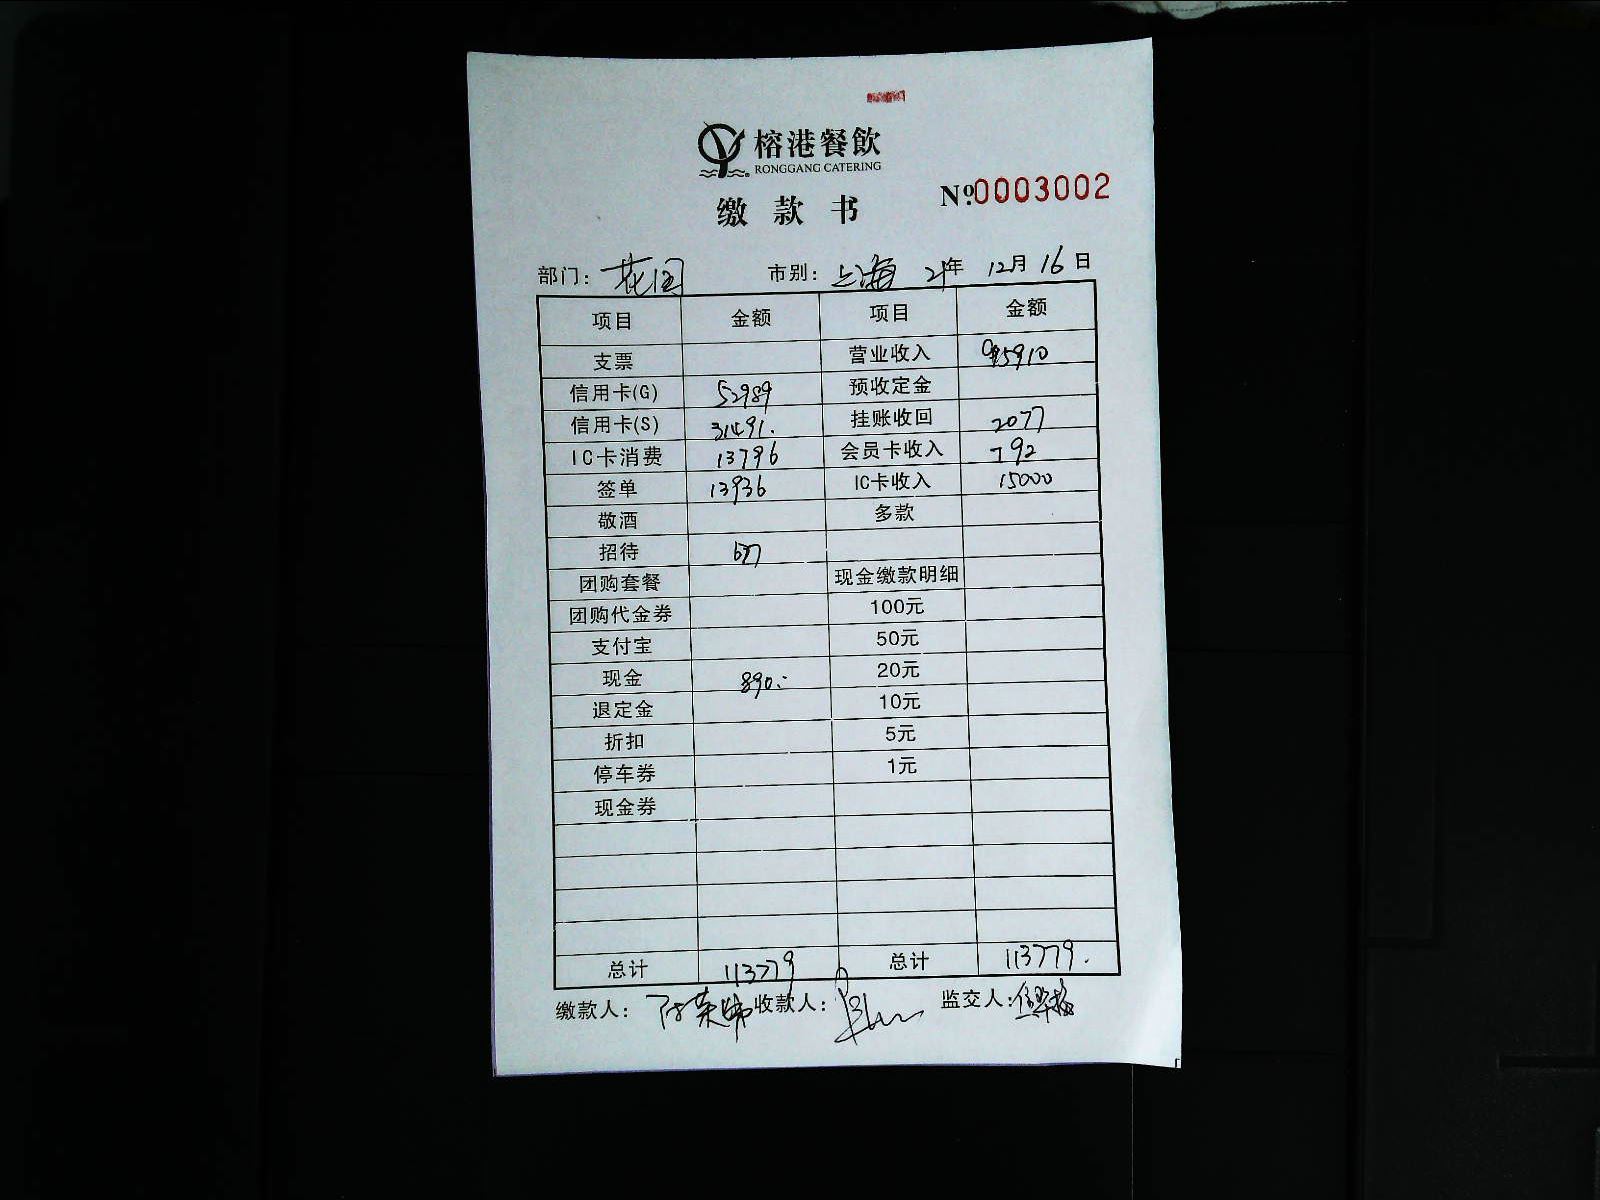 榕港餐飲
RONGGANG CATERING
缴款书
№0003002
部门：花园 市别：上海 21年 12月 16日
项目 金额 项目 金额
支票 营业收入 95910
信用卡(G) 52989 预收定金
信用卡(S) 31491. 挂账收回 2077
IC卡消费 13796 会员卡收入 792
签单 13936 IC卡收入 15000
敬酒 多款
招待 677
团购套餐 现金缴款明细
团购代金券 100元
支付宝 50元
现金 890.- 20元
退定金 10元
折扣 5元
停车券 1元
现金券
总计 113779 总计 113779.
缴款人： 收款人： 监交人：